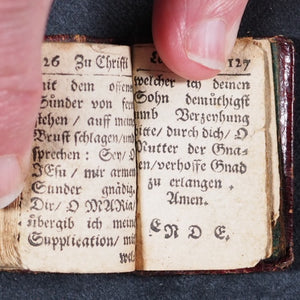 26 Zu Christi
mit dem offene
Sünder von fer
stehen / auff mein
Brust schlagen/und
sprechen : Sey/O
JEsu / mir armen
Sünder gnädig.
Dir/ O MARia/
übergib ich mein
Supplication/ mit
wel-
127
welcher ich deinen
Sohn demüthigst
umb Verzeyhung
bitte/ durch dich/ O
Mutter der Gna-
den/verhoffe Gnad
zu erlangen.
Amen.
ENDE.